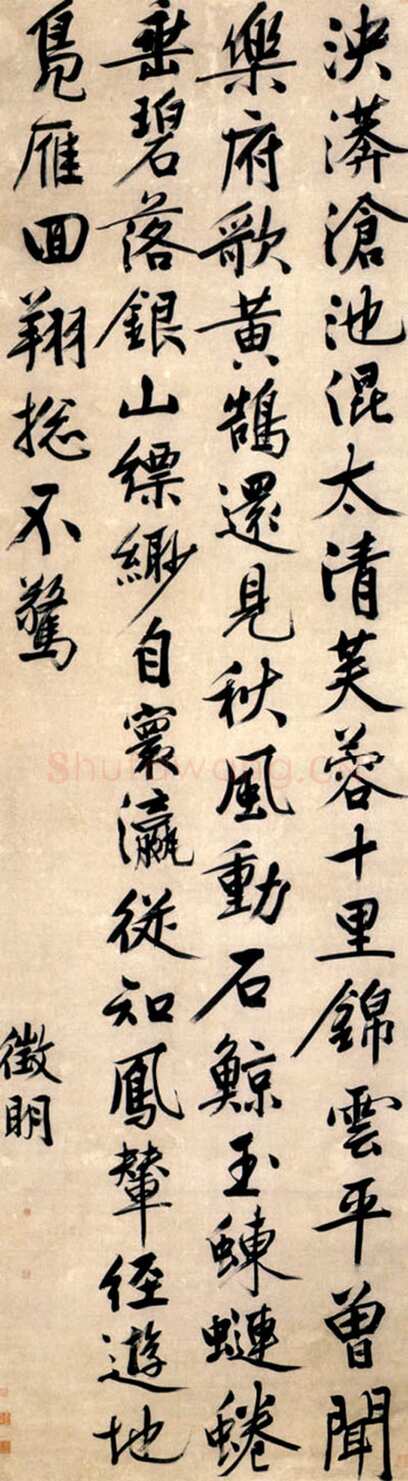 泱漭滄池混太清芙蓉十里錦雲平曾聞
樂府歌黄鵠還見秋風動石鯨玉蝀蜷
垂碧落銀山縹緲自寰瀛從知鳳輦經遊地
鳧雁回翔捴不驚
徵明